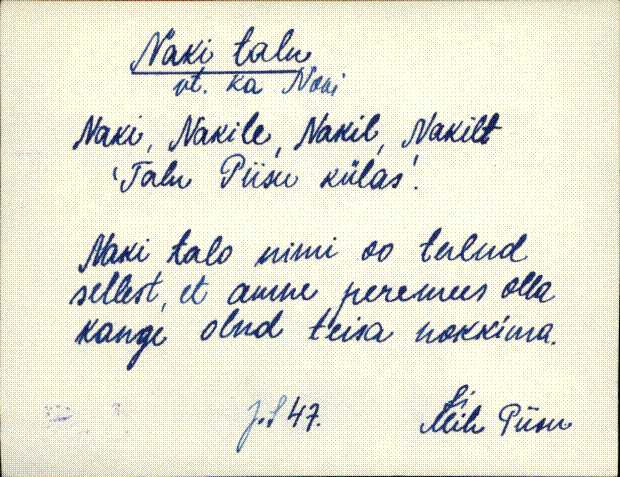 Naki talu
vt. ka Noki
Naki, Nakile, Nakil, Nakilt
'Talu Piisu külas'.
Naki talo nimi oo tulnd
sellest, et amne peremees olla
kange olnd teisa nokkima.
J.S 47.
Piisu